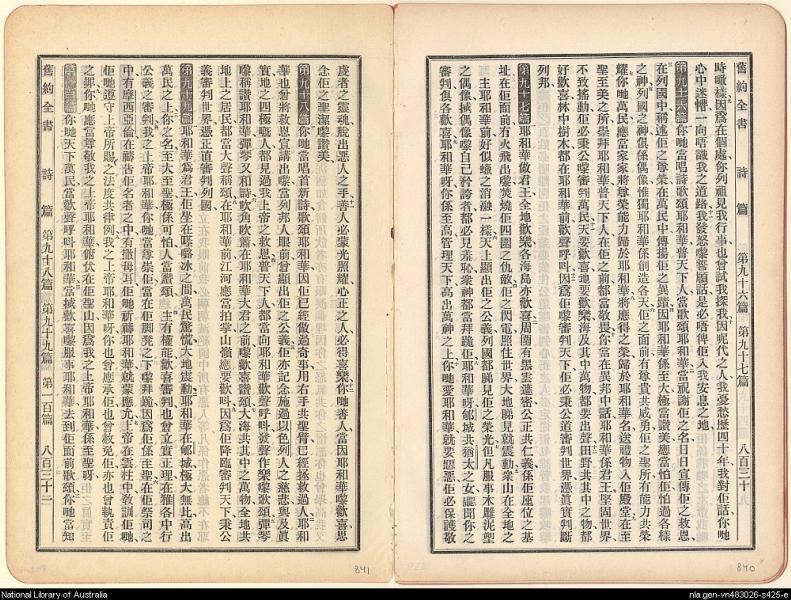 舊約全書 詩篇 第九十六篇 第九十七篇 八百三十
時噉樣因爲在個處你列祖見我行事也曾試我探我因呢代之人我憂愁歷四十年我對佢話你哋
心中迷懵一向唔識我之道路我發怒嚟誓願話是必唔俾佢入我安息之地
第九十六篇 你哋當唱新詩歌頌耶和華普天下人當歌頌耶和華當祝謝佢之名日日宣傳佢之救恩
在列國中稱述佢之尊榮在萬民中傳揚佢之異蹟因耶和華係至大極當讚美應當怕佢怕過各樣
之神列國之神俱係偶像惟獨耶和華係創造各天佢之面前有尊貴共威勇佢之聖所有能力共榮
耀你哋萬民應當家家將尊榮能力歸於耶和華將應得之榮歸於耶和華名送禮物入佢殿堂在至
聖至美之所崇拜耶和華普天下人在佢之前都當敬畏你當在異邦中話耶和華係君王堅固世界
不致搖動佢必秉公嚟審判萬民天要歡喜地要歡樂海及其中萬物都要出聲田野共其中之物都
好歡喜林中樹木都在耶和華前歡聲呼叫因爲佢嚟審判天下佢必秉公道審判世界憑眞實判斷
列邦
第九十七篇 耶和華做君王全地歡樂各海島亦歡喜周圍有黑雲遮密公正共仁義係佢座位之基
址在佢面前有火飛出嚟焚燒佢四圍之仇敵佢之閃電照住世界大地睇見就震動衆山在全地之
主耶和華前好似蠟之消融一樣天上顯出佢之公義列國都睇見佢之榮光但凡服事木雕泥塑
之偶像拜偶像嚟自己矜誇者都必見羞恥衆神都當拜跪佢耶和華呀郇城共猶太之女聽聞你之
審判俱各歡喜耶和華呀你係至高管理天下高出萬神之上你哋愛耶和華就要惡惡佢必保護敬
虔者之靈魂脫出惡人之手善人必蒙光照耀心正之人必得喜樂你哋善人當因耶和華嚟歡喜思
念佢之聖潔嚟讚美
第九十八篇 你哋當唱首新詩歌頌耶和華因佢已經做過奇事用右手共聖臂已經拯救過人耶和
華也曾將救恩宣講出嚟當列邦人眼前曾顯出佢之公義佢亦記念施過以色列人之慈悲與及眞
實地之四極嘅人都見過我上帝之救恩普天下人都當向耶和華歡聲呼叫發聲作樂嚟歌頌彈琴
嚟稱讚耶和華彈琴又和詩吹角吹簫在耶和華大君之前歡喜讚頌大海共其中之萬物全地共
地上之居民都當大聲稱頌在耶和華前江河應當拍掌山嶺應要歡叫因爲佢降臨審判天下秉公
義審判世界憑正直審判列國
第九十九篇 耶和華爲君王佢坐在𠼝嚕冰之間萬民驚慌大地震動耶和華在郇城極大無比高出
萬民之上你之名至大至聖極係可怕人當讚頌 主有權能歡喜審判也曾立實正理在雅各中行
公義之審判我之上帝耶和華你哋當尊崇佢當在佢脚凳之下嚟拜跪因爲佢係至聖在佢祭司之
中有摩西亞倫在禱告佢名者之中有撒母耳佢哋祈禱耶和華就蒙應允上帝在雲柱中教訓佢哋
佢哋遵守上帝所賜之法度共律例我之上帝耶和華呀你也曾應承佢也曾赦免佢亦也曾執責佢
之罪你哋應當尊敬我之上帝耶和華俯伏在佢聖山因爲我之上帝耶和華係至聖呀
第一百篇 你哋天下萬民當歡聲呼叫耶和華當掂歡喜嚟服事耶和華去到佢面前歌頌你哋當知
舊約全書 詩篇 第九十八篇 第九十九篇 第一百篇 八百三十二
841
840
National Library of Australia
nla.gen-vn483026-s425-e